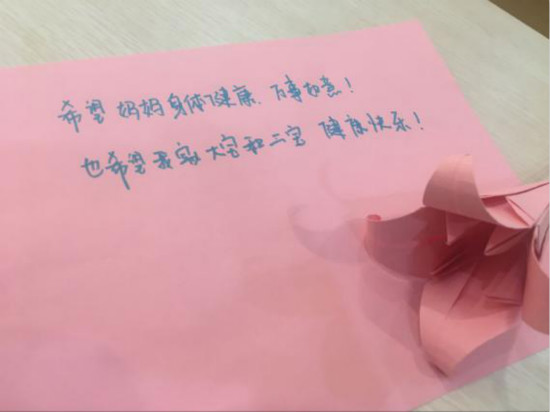 希望妈妈身体健康.万事如意!
也希望我家大宝和二宝 健康快乐!